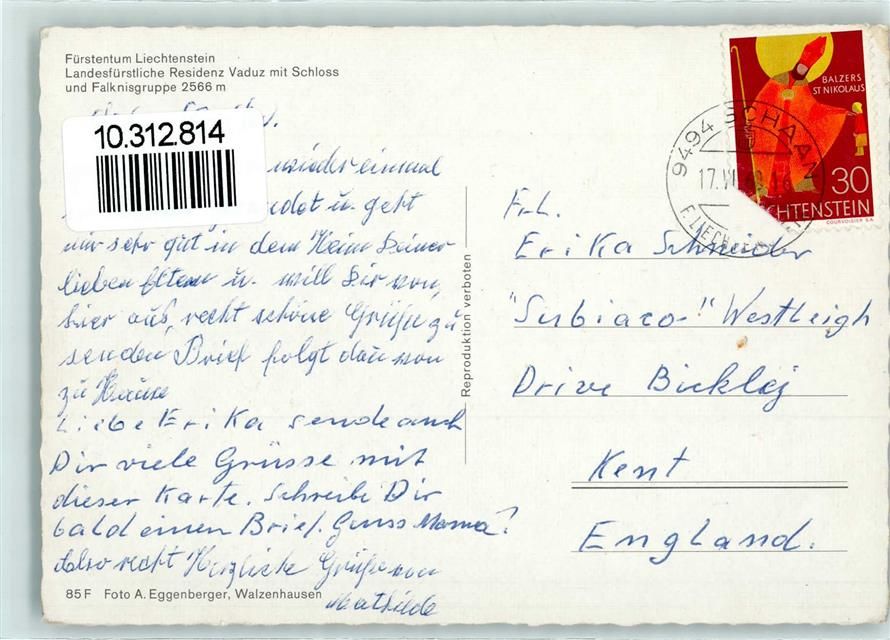 Fürstentum Liechtenstein
Landesfürstliche Residenz Vaduz mit Schloss
und Falknisgruppe 2566 m
10.312.814
wieder einmal
u. geht
mir sehr gut in dem Heim Deiner
lieben Eltern u. will Dir von
hier aus recht schöne Grüße zu
senden Brief folgt dan von
zu Hause
Liebe Erika sende auch
Dir viele Grüsse mit
dieser Karte. Schreibe Dir
bald einen Brief. Gruss Mama
Also recht Herzliche Grüße von
Mathilde
85 F Foto A. Eggenberger, Walzenhausen
Reproduktion verboten
BALZERS
ST NIKOLAUS
30
COURVOISIER S.A.
9494 SCHAAN
17.
Frl.
Erika Schneider
"Subiaco" Westleigh
Drive Bickley
Kent
England.